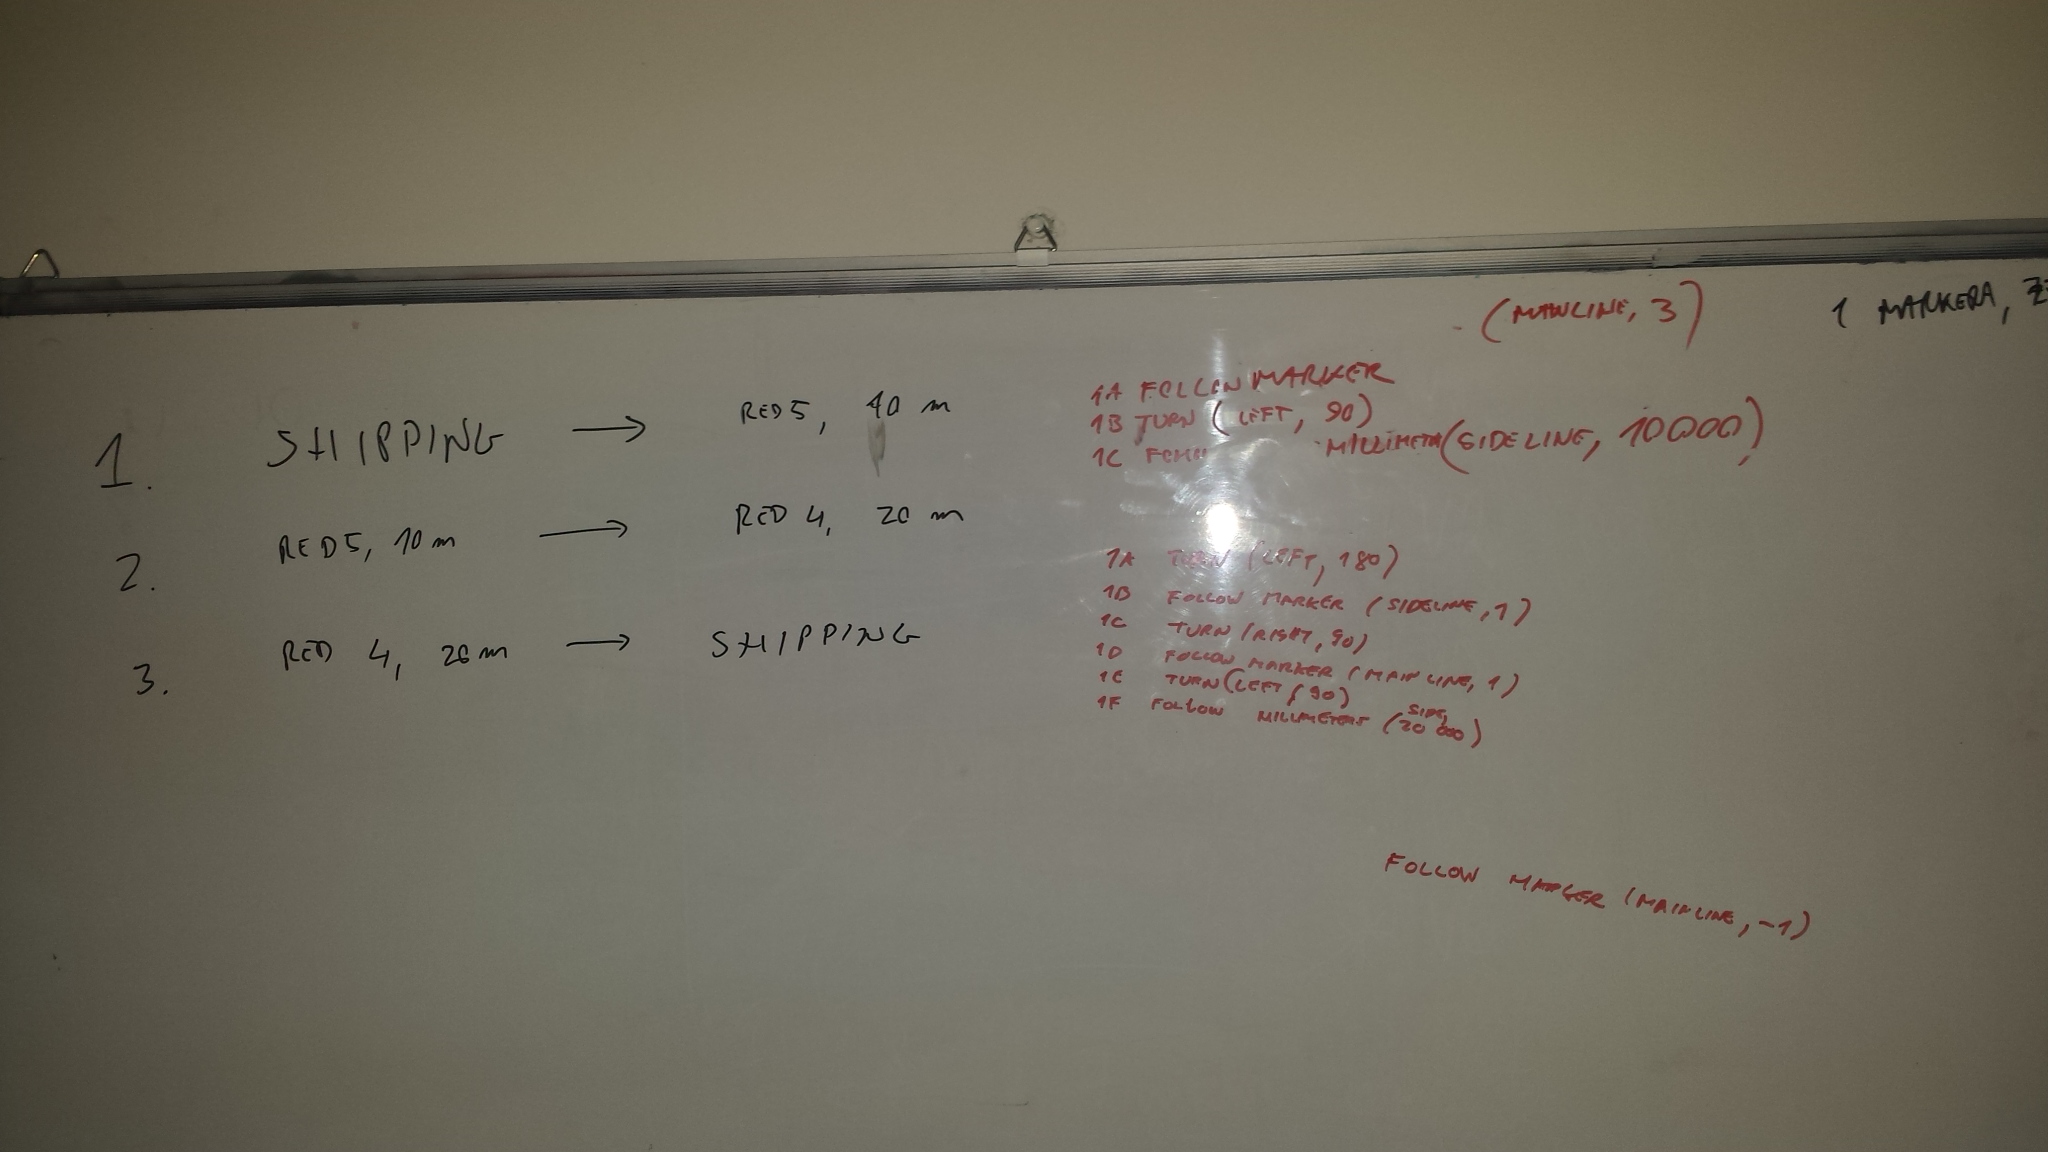 (MAINLINE, 3)
1 MARKERA,
1. SHIPPING → RED5, 10 m
2. RED5, 10 m → RED 4, 20 m
3. RED 4, 20 m → SHIPPING
1A FOLLOW MARKER
1B TURN (LEFT, 90)
1C (SIDELINE, 10000)
1A TURN (LEFT, 180)
1B FOLLOW MARKER (SIDELINE, 1)
1C TURN (RIGHT, 90)
1D FOLLOW MARKER (MAINLINE, 1)
1E TURN (LEFT, 90)
1F FOLLOW MILLIMETERS (SIDE, 20 000)
FOLLOW MARKER (MAINLINE, -1)